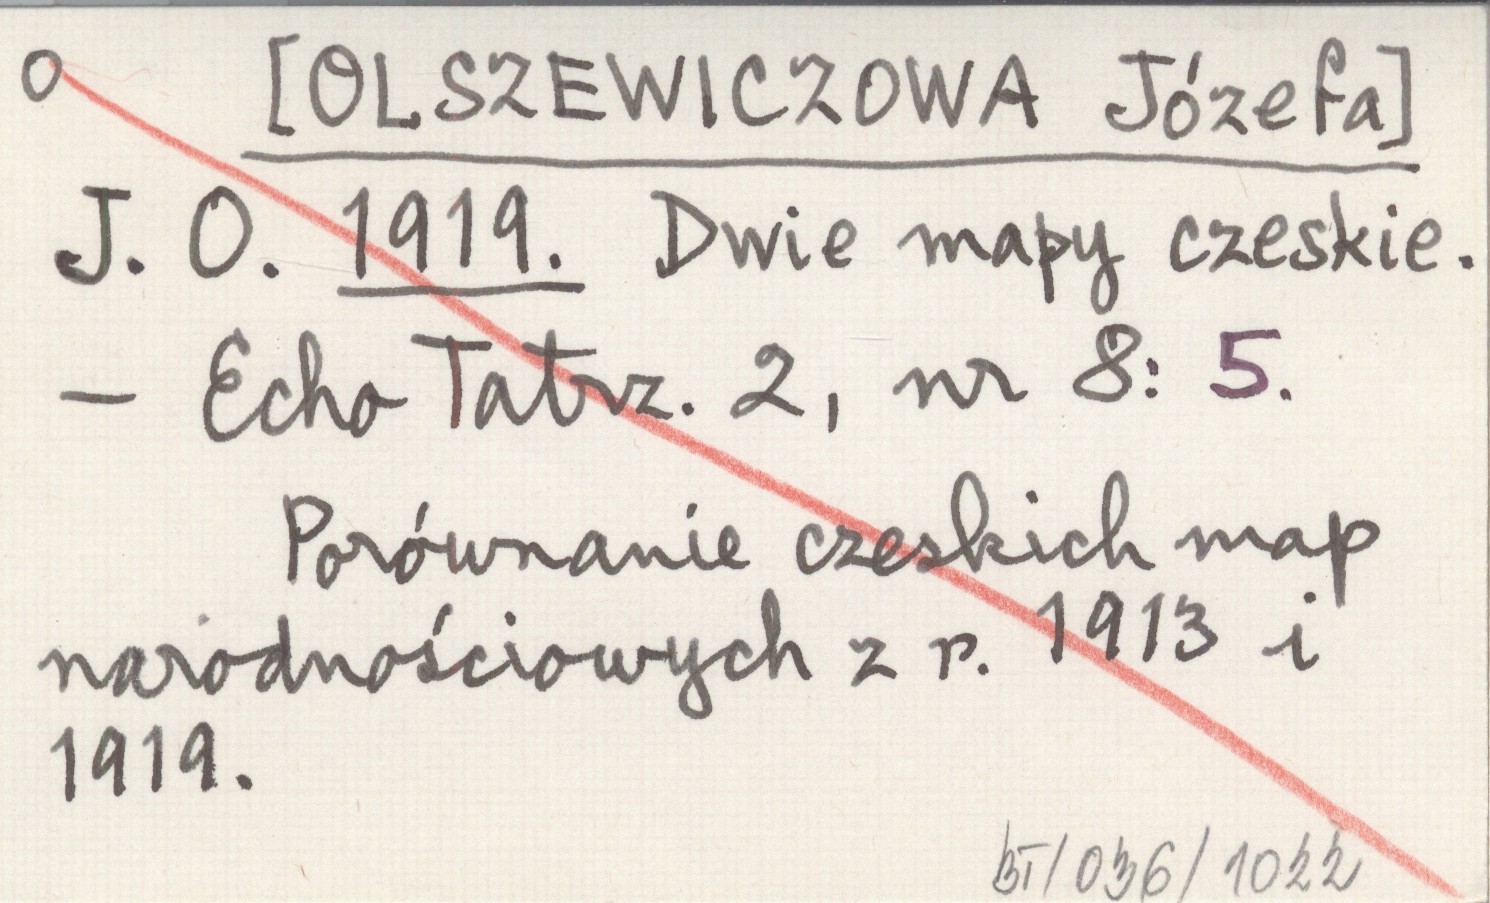 O [OLSZEWICZOWA Józefa]
J. O. 1919. Dwie mapy czeskie.
— Echo Tatrz. 2, nr 8: 5.
Porównanie czeskich map
narodnościowych z r. 1913 i
1919.
BT/036/1022